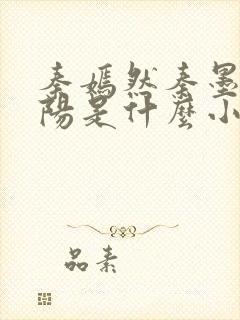 秦嫣然秦墨
陽是什麼小
品素